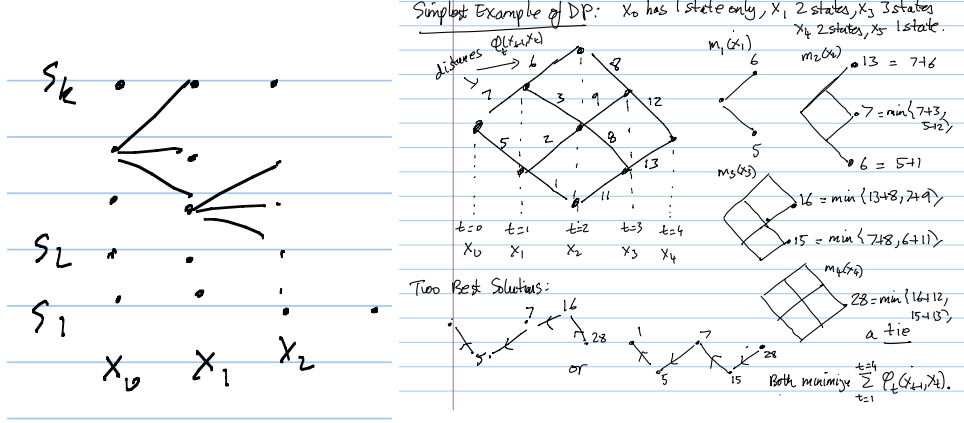 Simplest Example of DP: X₀ has 1 state only, X₁ 2 states, X₃ 3 states
X₄ 2 states, X₅ 1 state.
distances φₜ(xₜ₋₁,xₜ)
7 6 8
3 9 12
5 2 8 13
1 11
t=0 t=1 t=2 t=3 t=4
X₀ X₁ X₂ X₃ X₄
m₁(x₁)
6
5
m₂(x₂)
13 = 7+6
7 = min{7+3,
5+2},
6 = 5+1
m₃(x₃)
16 = min{13+8, 7+9},
15 = min{7+8, 6+11},
m₄(x₄)
28 = min{16+12,
15+13},
a tie
Two Best Solutions:
5 7 16 28
or
1 5 7 15 28
Both minimize Σ φₜ(xₜ₋₁,xₜ).
t=4
t=1
Sk
S2
S1
X₀ X₁ X₂